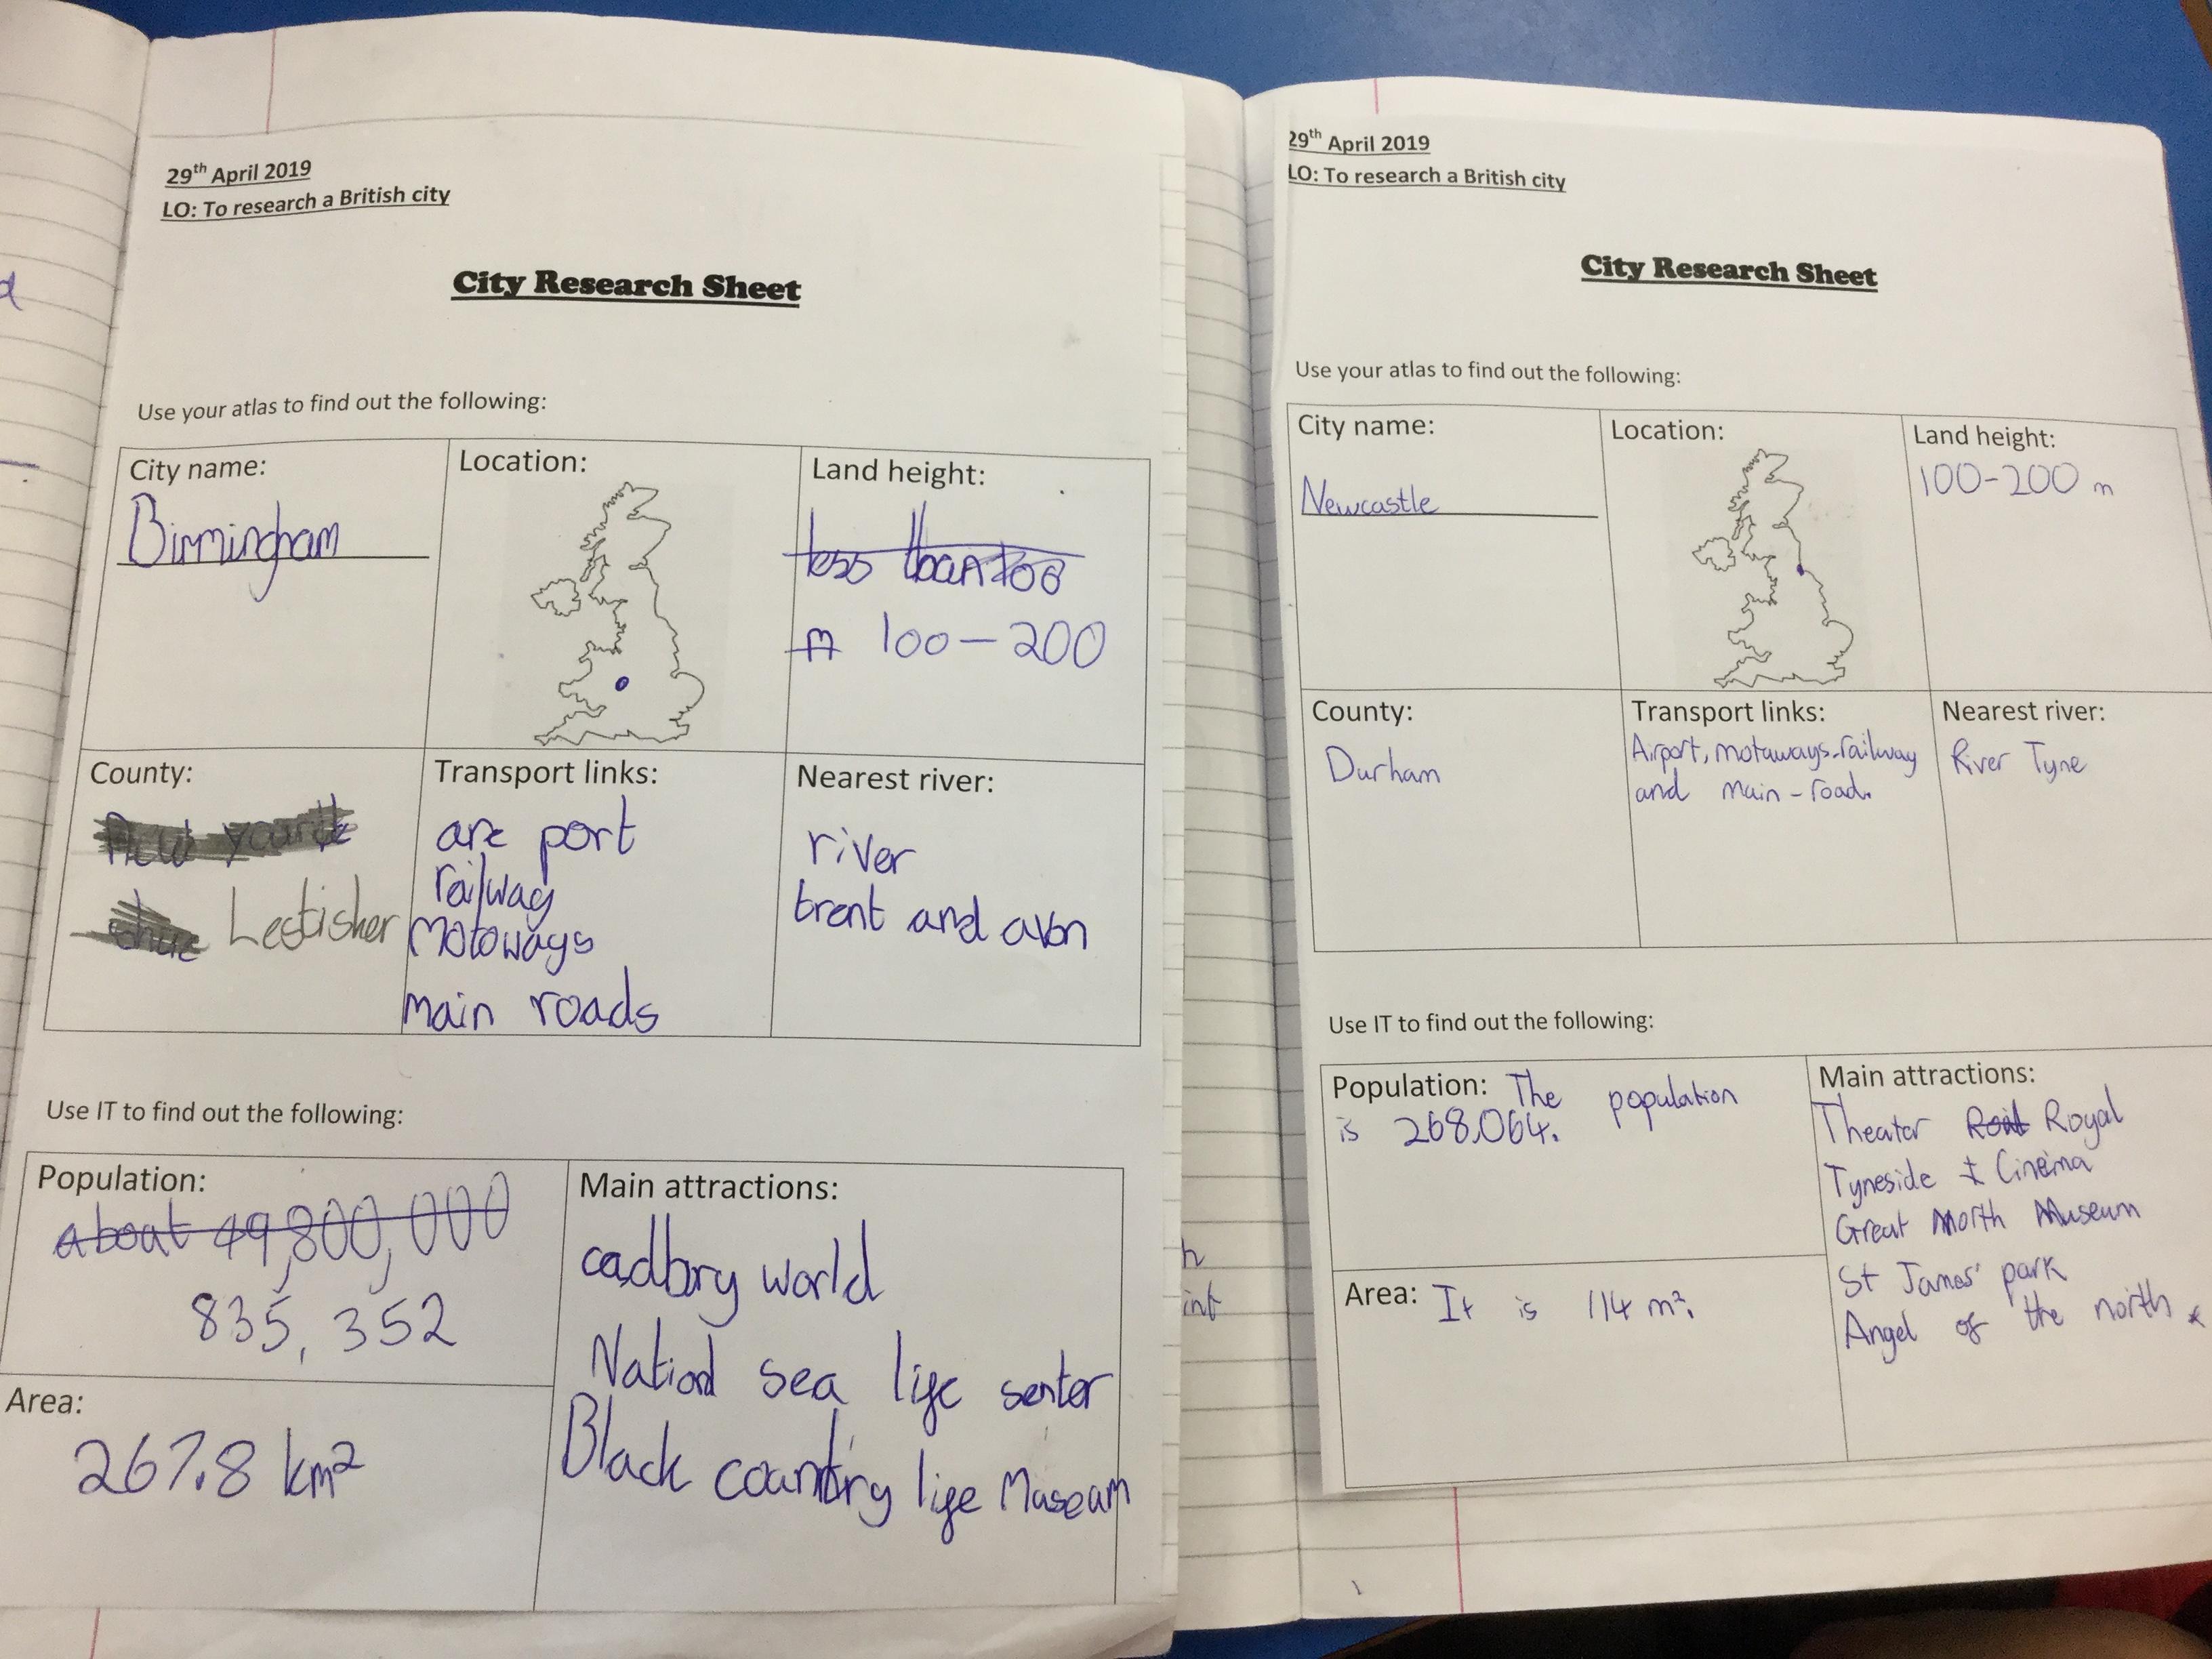 29th April 2019
LO: To research a British city
City Research Sheet
Use your atlas to find out the following:
City name:
Birmingham
Location:
Land height:
less than 100
m 100-200
County:
Lestisher
Transport links:
are port
railway
Motoways
main roads
Nearest river:
river
trent and avon
Use IT to find out the following:
Population:
about 49,800,000
835,352
Area:
267.8 km²
Main attractions:
cadbury world
National sea life senter
Black country life Museam
h
int
29th April 2019
LO: To research a British city
City Research Sheet
Use your atlas to find out the following:
City name:
Newcastle
Location:
Land height:
100-200 m
County:
Durham
Transport links:
Airport, motaways-railway
and main-road.
Nearest river:
River Tyne
Use IT to find out the following:
Population: The population
is 268,064.
Area: It is 114 m².
Main attractions:
Theater Royal
Tyneside Cinema
Great North Museum
St James' park
Angel of the north